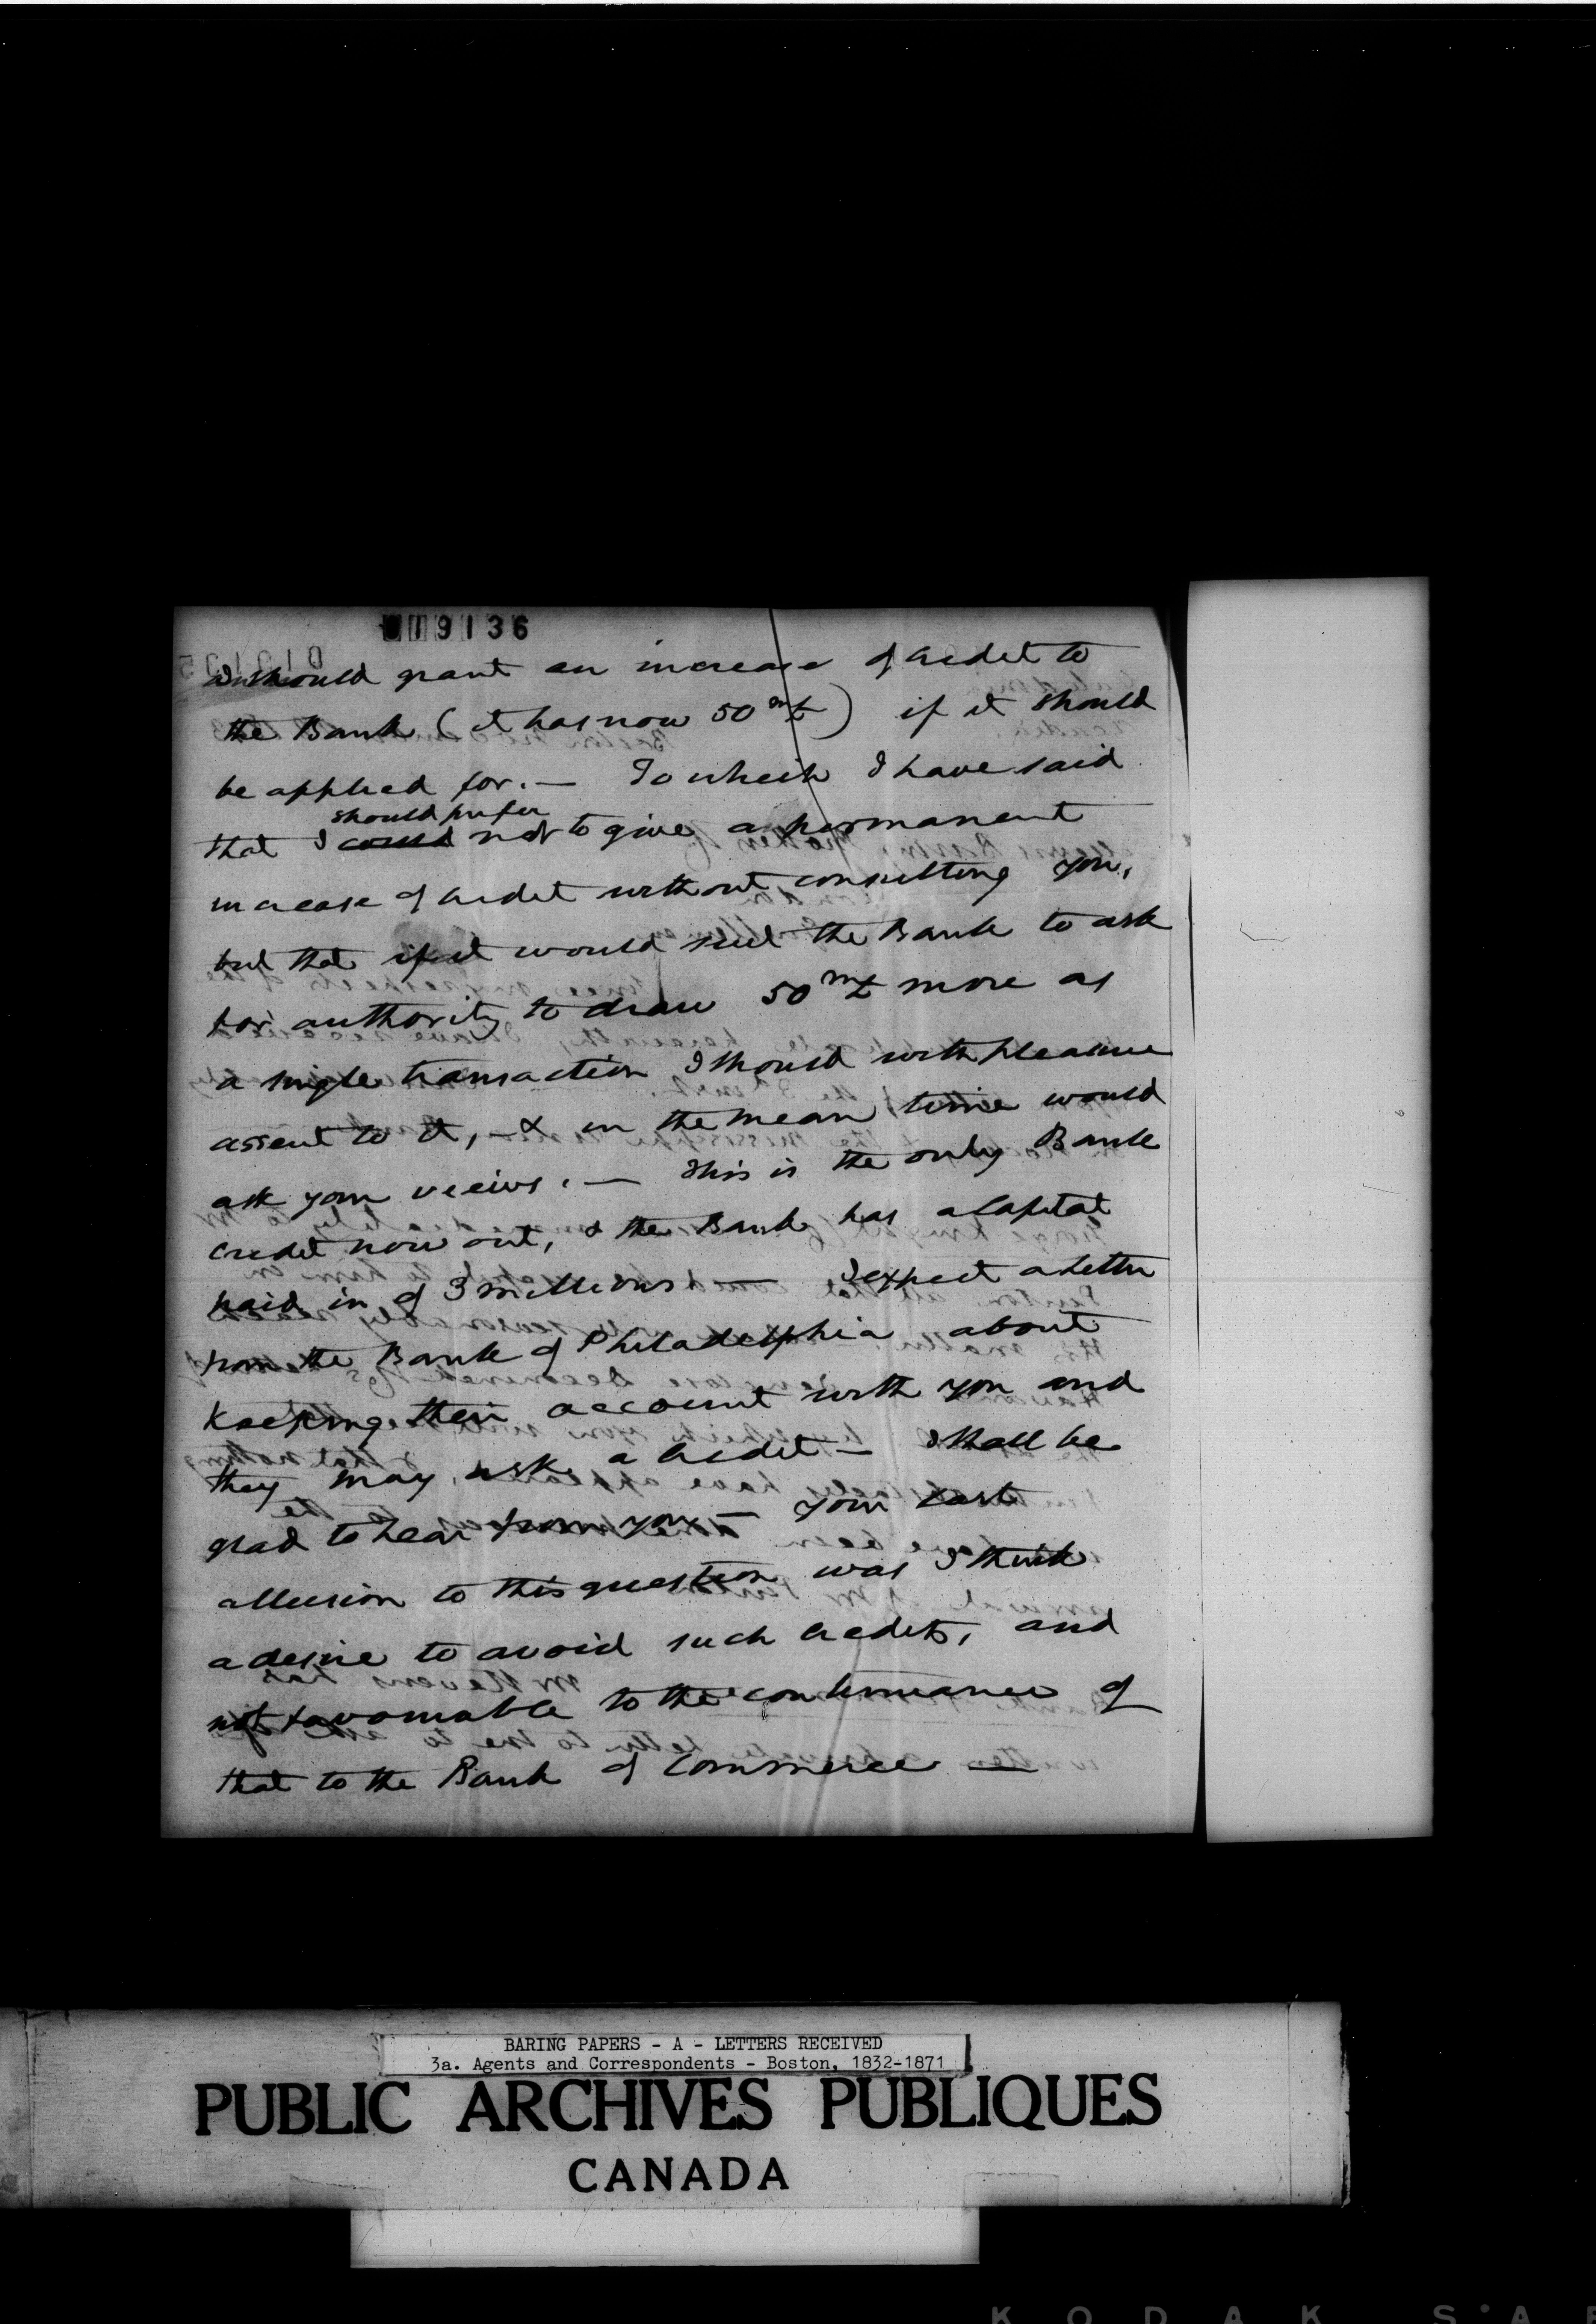 019136
I should grant an increase of credit to
the Bank (it has now 50 m£) if it should
be applied for. — To which I have said
should prefer
that I could not to give a permanent
increase of credit without consulting you,
but that if it would suit the Bank to ask
for authority to draw 50 m£ more as
a single transaction I should with pleasure
assent to it, — & in the mean time would
ask your views. — This is the only Bank
credit now out, & the Bank has a Capital
paid in of 3 millions — I expect a letter
from the Bank of Philadelphia about
keeping their account with you and
they may ask a credit — Shall be
glad to hear from you — Your last
allusion to this question was I think
a desire to avoid such credits, and
not favourable to the continuance of
that to the Bank of Commerce —
BARING PAPERS - A - LETTERS RECEIVED
3a. Agents and Correspondents - Boston, 1832-1871
PUBLIC ARCHIVES PUBLIQUES
CANADA
KODAK S·A